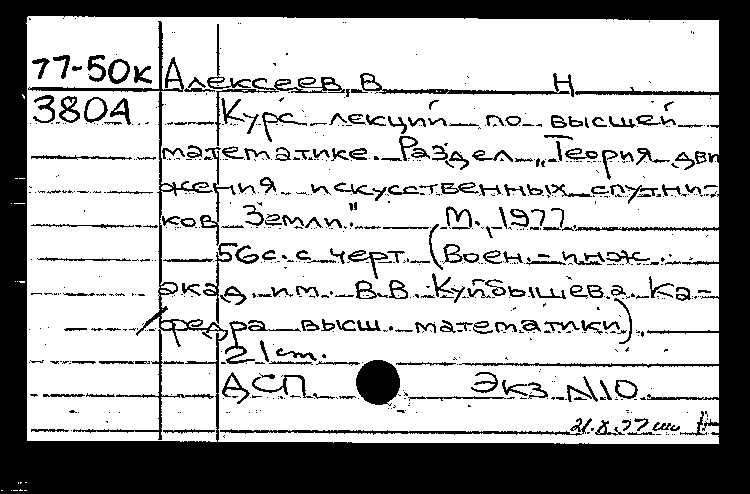 77-50к Алексеев, В Н
380А Курс лекций по высшей
математике. Раздел „Теория дви
жения искусственных спутни-
ков Земли." М., 1977
56с. с черт. (Воен.-инж.
акад. им. В.В. Куйбышева. Ка-
федра высш. математики).
21см.
ДСП. Экз N10.
21.X.77